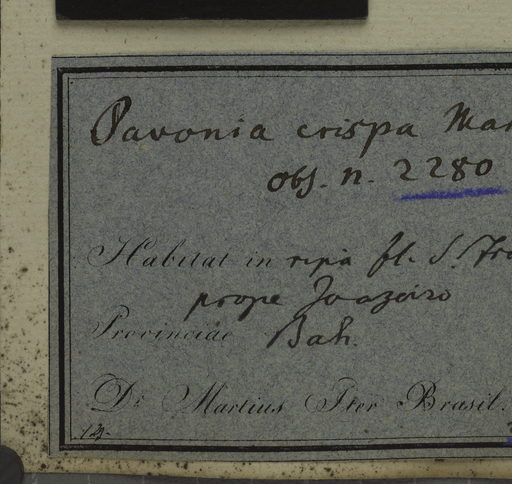 Pavonia crispa Mar
obs. n. 2280
Habitat in ripa fl. S. Fra
prope Joazeiro
Provinciae Bah.
Dr. Martius Iter Brasil.